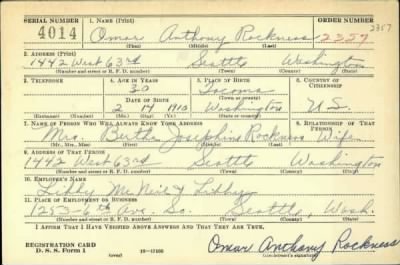 SERIAL NUMBER 1. NAME (Print) ORDER NUMBER
4014 Omar Anthony Rockness 2357 2357
(First) (Middle) (Last)
2. ADDRESS (Print)
1442 West 63rd Seattle Washington
(Number and street or R. F. D. number) (Town) (County) (State)
3. TELEPHONE 4. AGE IN YEARS 5. PLACE OF BIRTH 6. COUNTRY OF CITIZENSHIP
30 Tacoma
DATE OF BIRTH (Town or county)
2 14 1910 Washington U.S.
(Exchange) (Number) (Mo.) (Day) (Yr.) (State or country)
7. NAME OF PERSON WHO WILL ALWAYS KNOW YOUR ADDRESS 8. RELATIONSHIP OF THAT PERSON
Mrs. Bertha Josephine Rockness Wife
(Mr., Mrs., Miss) (First) (Middle) (Last)
9. ADDRESS OF THAT PERSON
1442 West 63rd Seattle Washington
(Number and street or R. F. D. number) (Town) (County) (State)
10. EMPLOYER'S NAME
Libby McNeil & Libby
11. PLACE OF EMPLOYMENT OR BUSINESS
1253-6th Ave. So. Seattle, Wash.
(Number and street or R. F. D. number) (Town) (County) (State)
I AFFIRM THAT I HAVE VERIFIED ABOVE ANSWERS AND THAT THEY ARE TRUE.
REGISTRATION CARD
D. S. S. Form 1 (over) Omar Anthony Rockness
(Registrant's signature)